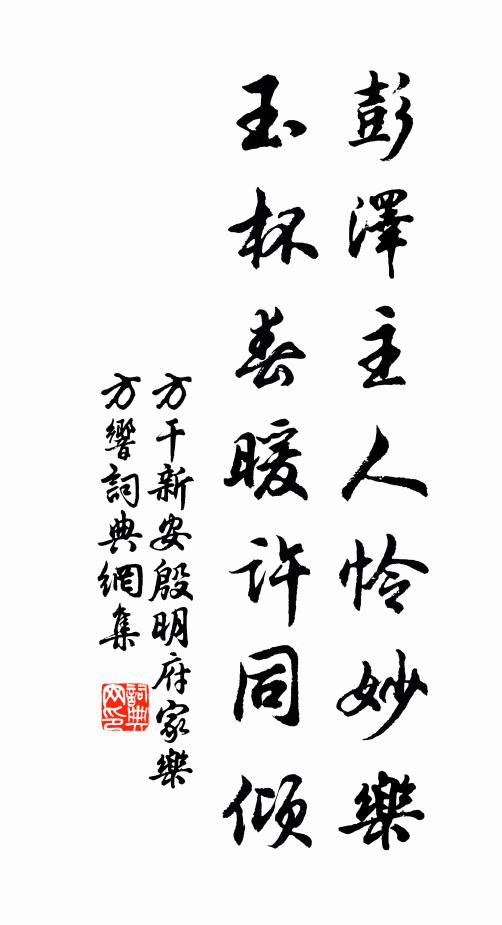 彭澤主人憐妙樂
玉杯春暖許同傾
方干新安殷明府家樂
方響詞典網集
詞典網印